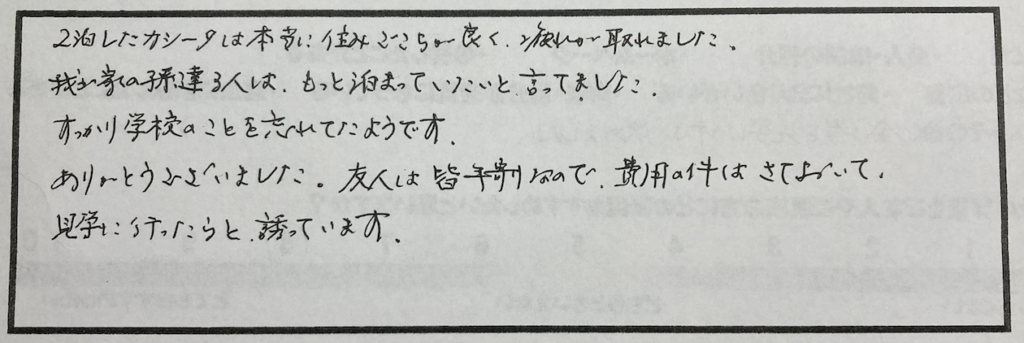 2泊したカシータは本当に住みごこちが良く、疲れが取れました。
我が家の孫達3人は、もっと泊まっていたいと言ってました。
すっかり学校のことを忘れてたようです。
ありがとうございました。友人は皆年寄りなので、費用の件はさておいて、
見学に行ったらと、誘っています。